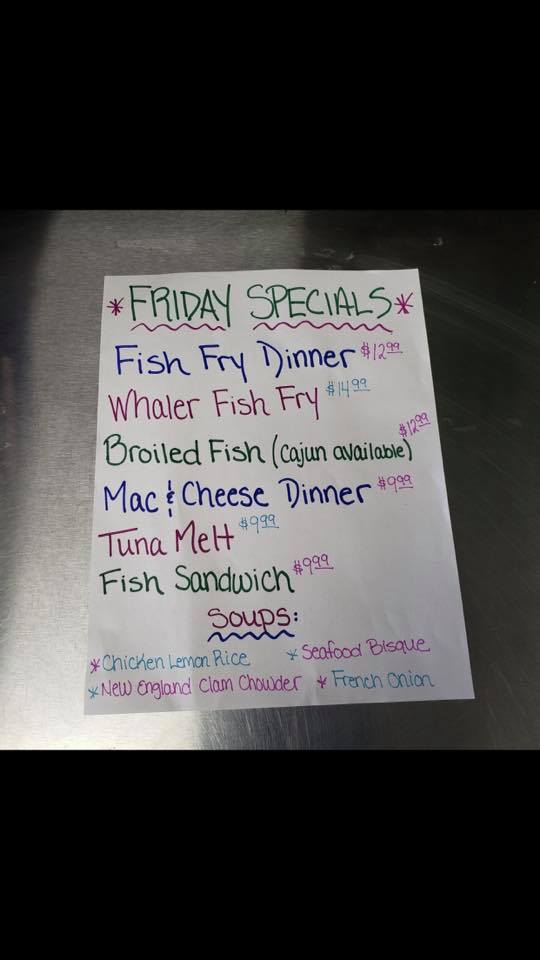 *FRIDAY SPECIALS*
Fish Fry Dinner $12.99
Whaler Fish Fry $14.99
Broiled Fish (Cajun available) $12.99
Mac & Cheese Dinner $9.99
Tuna Melt $9.99
Fish Sandwich $9.99
Soups:
*Chicken Lemon Rice *Seafood Bisque
*New England Clam Chowder *French Onion